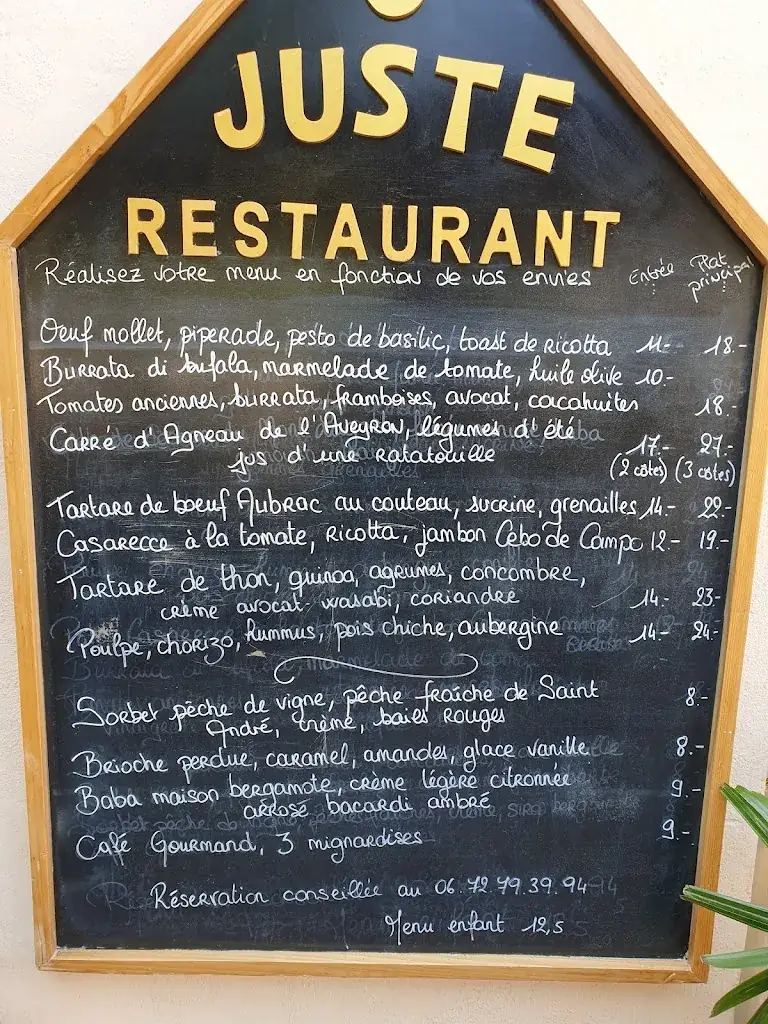 JUSTE
RESTAURANT
Réalisez votre menu en fonction de vos envies Entrée Plat
principal
Oeuf mollet, piperade, pesto de basilic, toast de ricotta 11.- 18.-
Burrata di bufala, marmelade de tomate, huile olive 10-
Tomates anciennes, burrata, framboises, avocat, cacahuètes 18.-
Carré d'Agneau de l'Aveyron, légumes d'été
jus d'une ratatouille 17.- 27.-
(2 cotes) (3 cotes)
Tartare de boeuf Aubrac au couteau, sucrine, grenailles 14.- 22.-
Casarecce à la tomate, ricotta, jambon Cebo de Campo 12.- 19.-
Tartare de thon, quinoa, agrumes, concombre,
crème avocat wasabi, coriandre 14.- 23.-
Poulpe, chorizo, hummus, pois chiche, aubergine 14.- 24.-
Sorbet pêche de vigne, pêche fraîche de Saint 8.-
André, crème, baies rouges
Brioche perdue, caramel, amandes, glace vanille 8.-
Baba maison bergamote, crème légère citronnée 9.-
arrosé bacardi ambré
Café Gourmand, 3 mignardises 9.-
Réservation conseillée au 06.72.79.39.94
Menu enfant 12,5